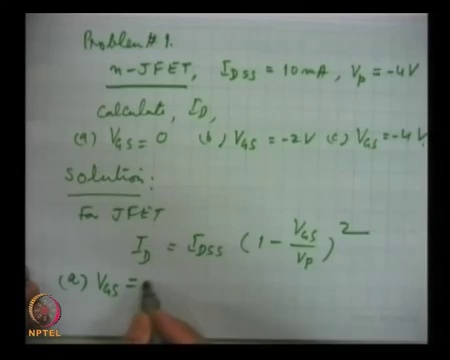 Problem # 1.
n-JFET, I_DSS = 10mA, V_p = -4V
Calculate, I_D,
(a) V_GS = 0 (b) V_GS = -2V (c) V_GS = -4V.
Solution:
For JFET
I_D = I_DSS (1 - V_GS/V_p)^2
(a) V_GS =
NPTEL